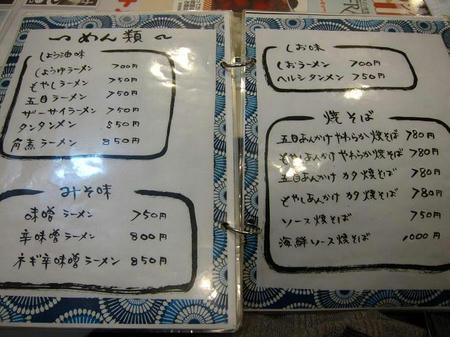 〜めん類〜
しょう油味
しょうゆラーメン 700円
もやしラーメン 750
五目ラーメン 750
ザーサイラーメン 750
タンタンメン 850
角煮ラーメン 850円
みそ味
味噌ラーメン 750
辛味噌ラーメン 800
ネギ辛味噌ラーメン 850
しお味
しおラーメン 700円
ヘルシタンメン 750
焼そば
五目あんかけやわらか焼そば 780円
もやしあんかけやわらか焼そば 780
五目あんかけカタ焼そば 780
もやしあんかけカタ焼そば 780
ソース焼そば 750
海鮮ソース焼そば 1000円